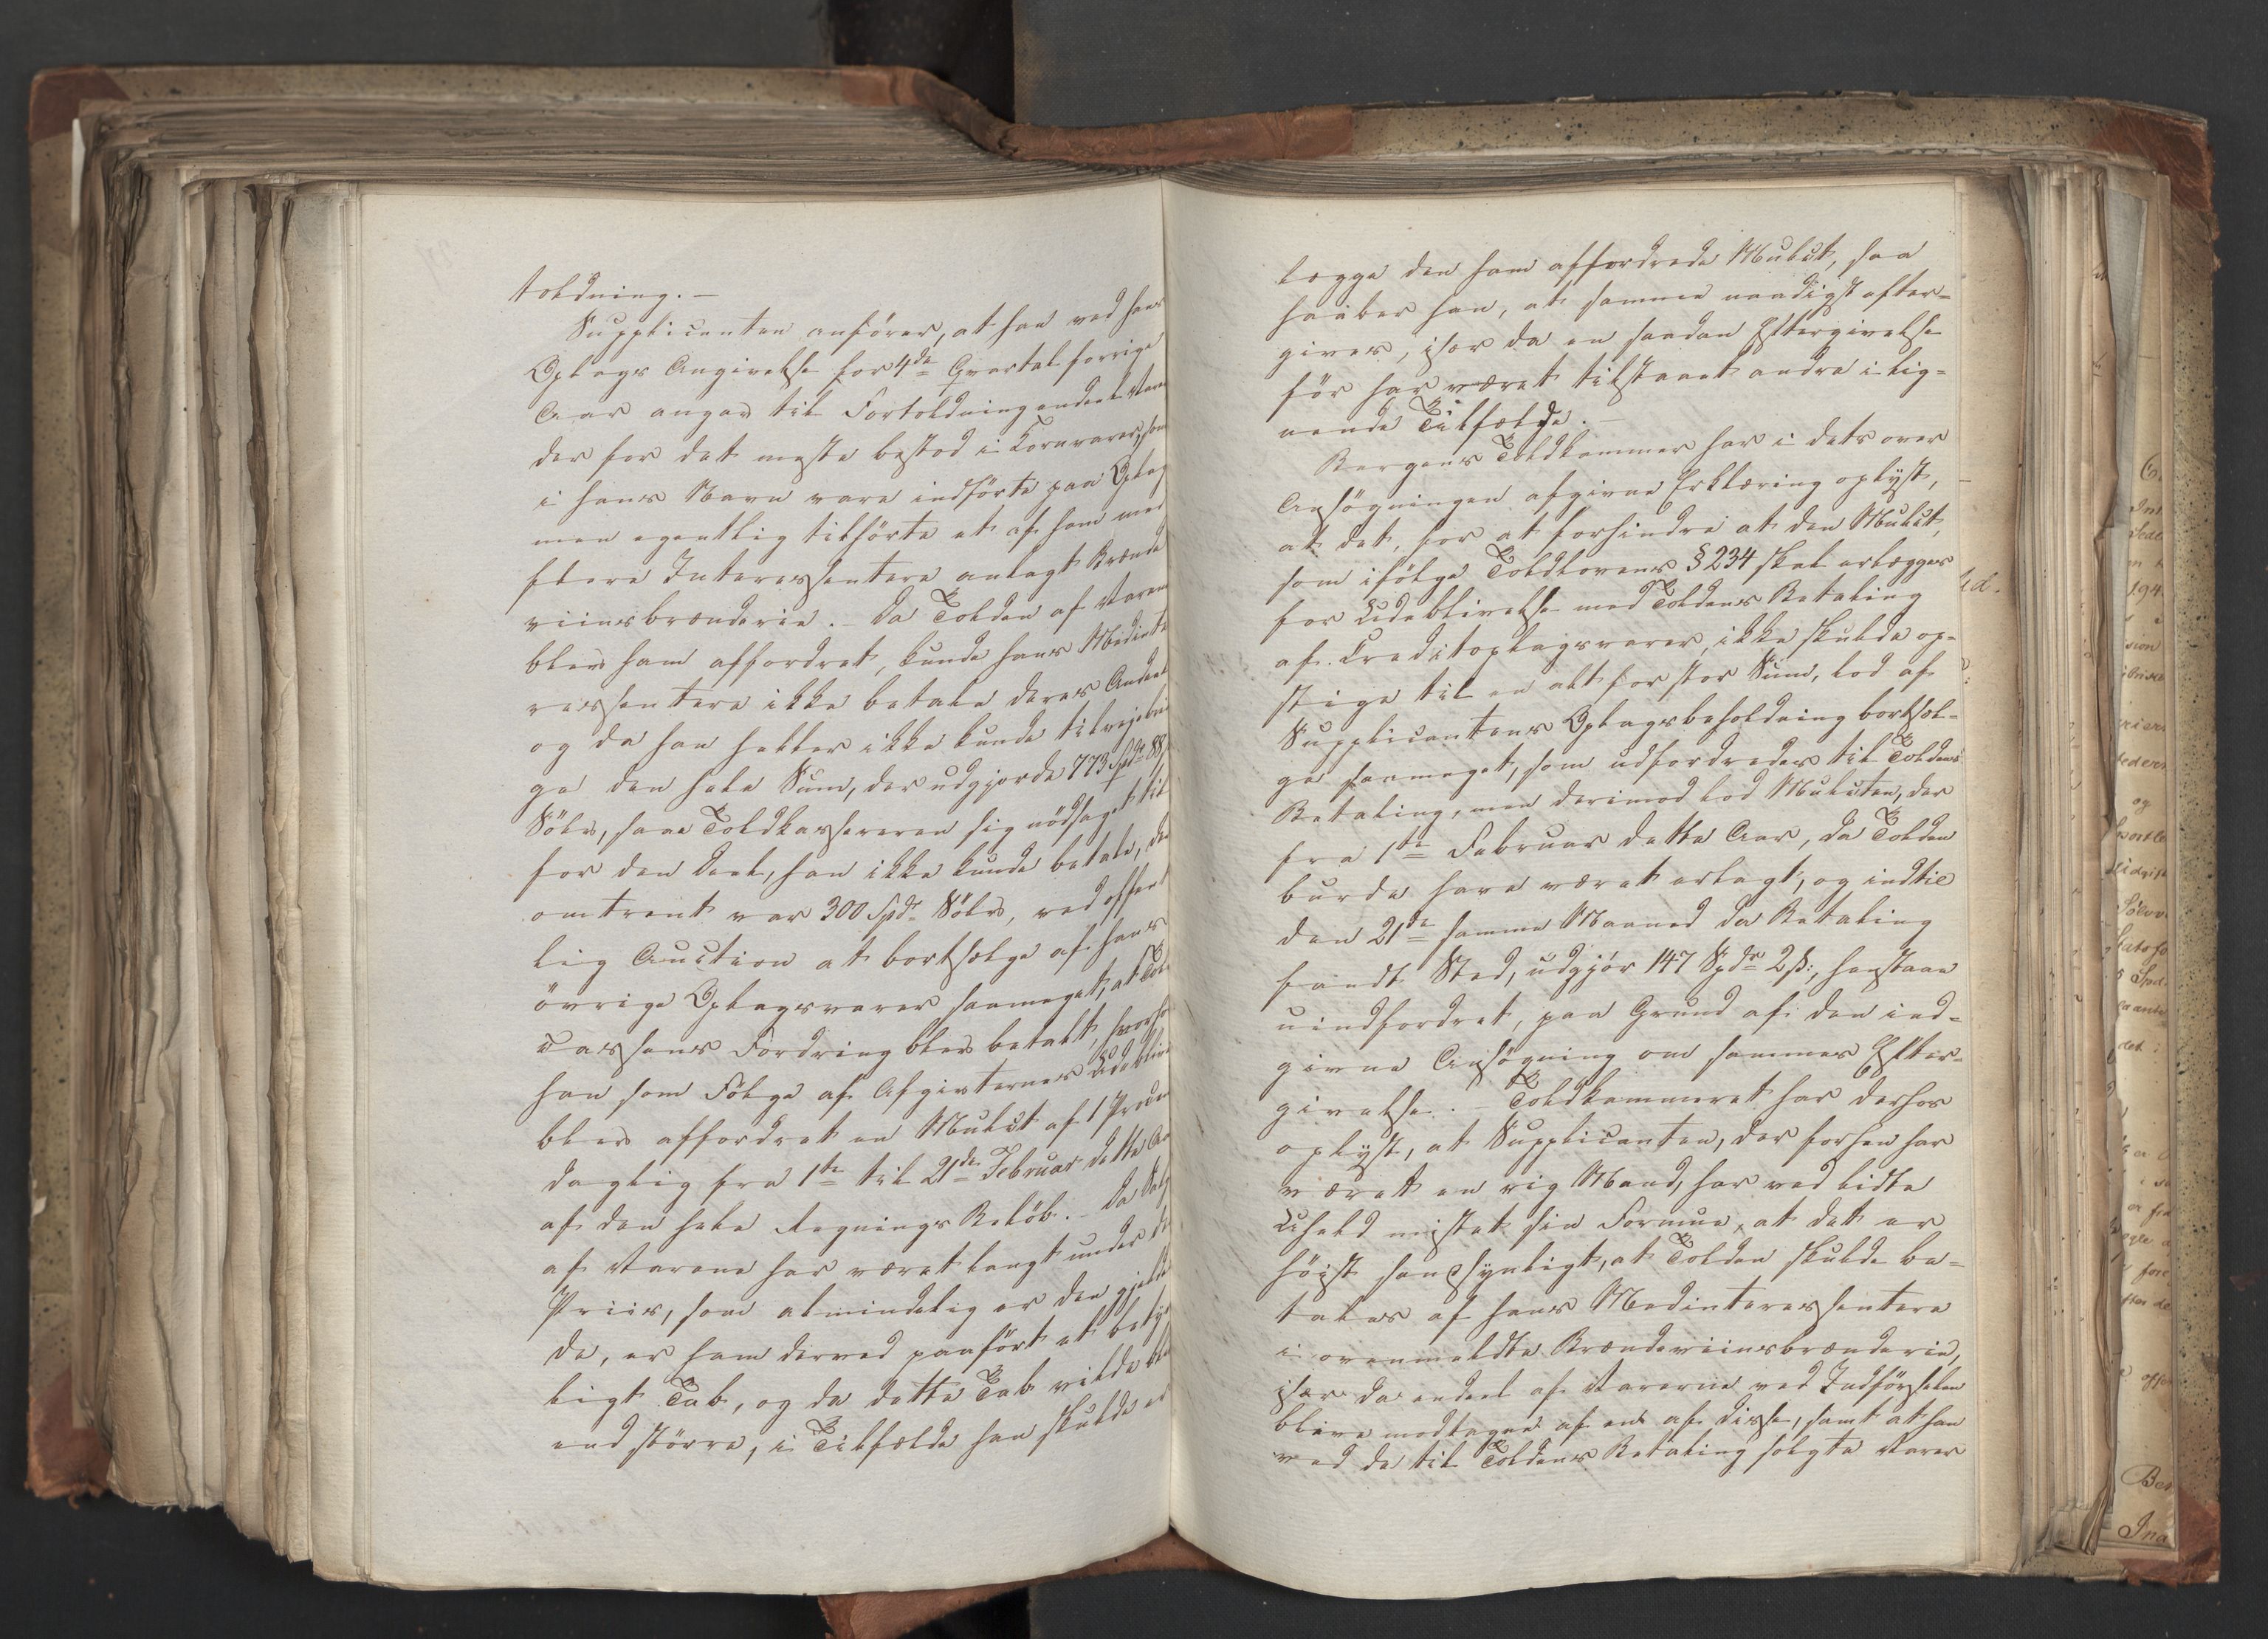 toldning. —
Supplicanten anfører, at han ved hans
Oplags Angivelse for 4de Qvartal forrige
Aar angav til Fortoldning endeel Vare
der for det meste bestod i Kornvarer, som
i hans Navn vare indførte paa Oplag
men egentlig tilhørte et af ham med
flere Interessentere anlagt Brænde
viinsbrænderie. — Da Tolden af Varene
blev ham affordret, kunde hans Medinte
ressentere ikke betale deres Andeel
og da han heller ikke kunde tilvejebrin
ge den hele Sum, der udgjorde 773 Spd. 88
Sølv, saae Toldkassereren sig nødsaget til
for den Deel, han ikke kunde betale, der
omtrent var 300 Spdr Sølv, ved offent
lig Auction at bortsælge af hans
øvrige Oplagsvarer saameget, at Told
cassens Fordring blev betalt, hvorhos
han som Følge af Afgivternes Udebliv
blev affordret en Mulct af 1 Procent
daglig fra 1te til 21de Februar dette Aar
af den hele Regnings Beløb. — Da Salg
af Varene har været langt under de
Priis, som almindelig er den gjelden
de, er ham derved paaført et bety
ligt Tab, og da dette Tab vilde bliv
end større, i Tilfælde han skulde er
lægge den ham affordrede Mulct, saa
haaber han, at samme naadigst efter=
gives, især da en saadan Eftergivelse
før har været tilstaaet andre i lig=
nende Tilfælde. —
Bergens Toldkammer har i dets over
Ansøgningen afgivne Erklæring oplyst,
at det, for at forhindre at den Mulct,
som ifølge Toldlovens § 234 skal erlægges
for Udeblivelse med Toldens Betaling
af Creditoplagsvarer, ikke skulde op=
stige til en alt for stor Sum, lod af
Supplicantens Oplagsbeholdning bortsæl=
ge saameget, som udfordredes til Toldens
Betaling, men derimod lod Mulcten, der
fra 1te Februar dette Aar, da Tolden
burde have været erlagt, og indtil
den 21de samme Maaned da Betaling
fandt Sted, udgjør 147 Spdr 2 ß:, henstaae
uindfordret, paa Grund af den ind=
givne Ansøgning om sammes Efter=
givelse. — Toldkammeret har derhos
oplyst, at Supplicanten, der forhen har
været en rig Mand, har ved lidte
Uheld mistet sin Formue, at det er
høist sandsynligt, at Tolden skulde be=
tales af hans Medinteressentere
i ovenmeldte Brændeviinsbrænderie,
især da endeel af Varerne ved Indførselen
bleve modtagne af een af disse, samt at han
ved de til Toldens Betaling solgte Varer